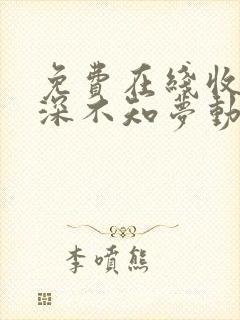 免費在綫收
深不知夢動
李噴熊